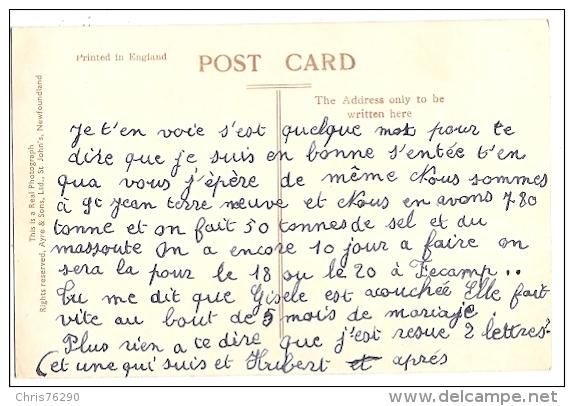 Printed in England
POST CARD
The Address only to be
written here
This is a Real Photograph
Rights reserved, Ayre & Sons, Ltd., St. John's, Newfoundland
Je t'en voie s'est quelque mot pour te
dire que je suis en bonne s'entée t'en
qua vous j'épère de même Nous sommes
à St Jean terre neuve et Nous en avons 780
tonne et on fait 50 tonnes de sel et du
massoute On a encore 10 jour a faire on
sera la pour le 18 ou le 20 à Fecamp ..
Tu me dit que Gisele est acouchée Elle fait
vite au bout de 5 mois de mariaje
Plus rien a te dire que j'est resue 2 lettres
(et une qui suis et Hubert et aprés
Chris76290
www.delcampe.net